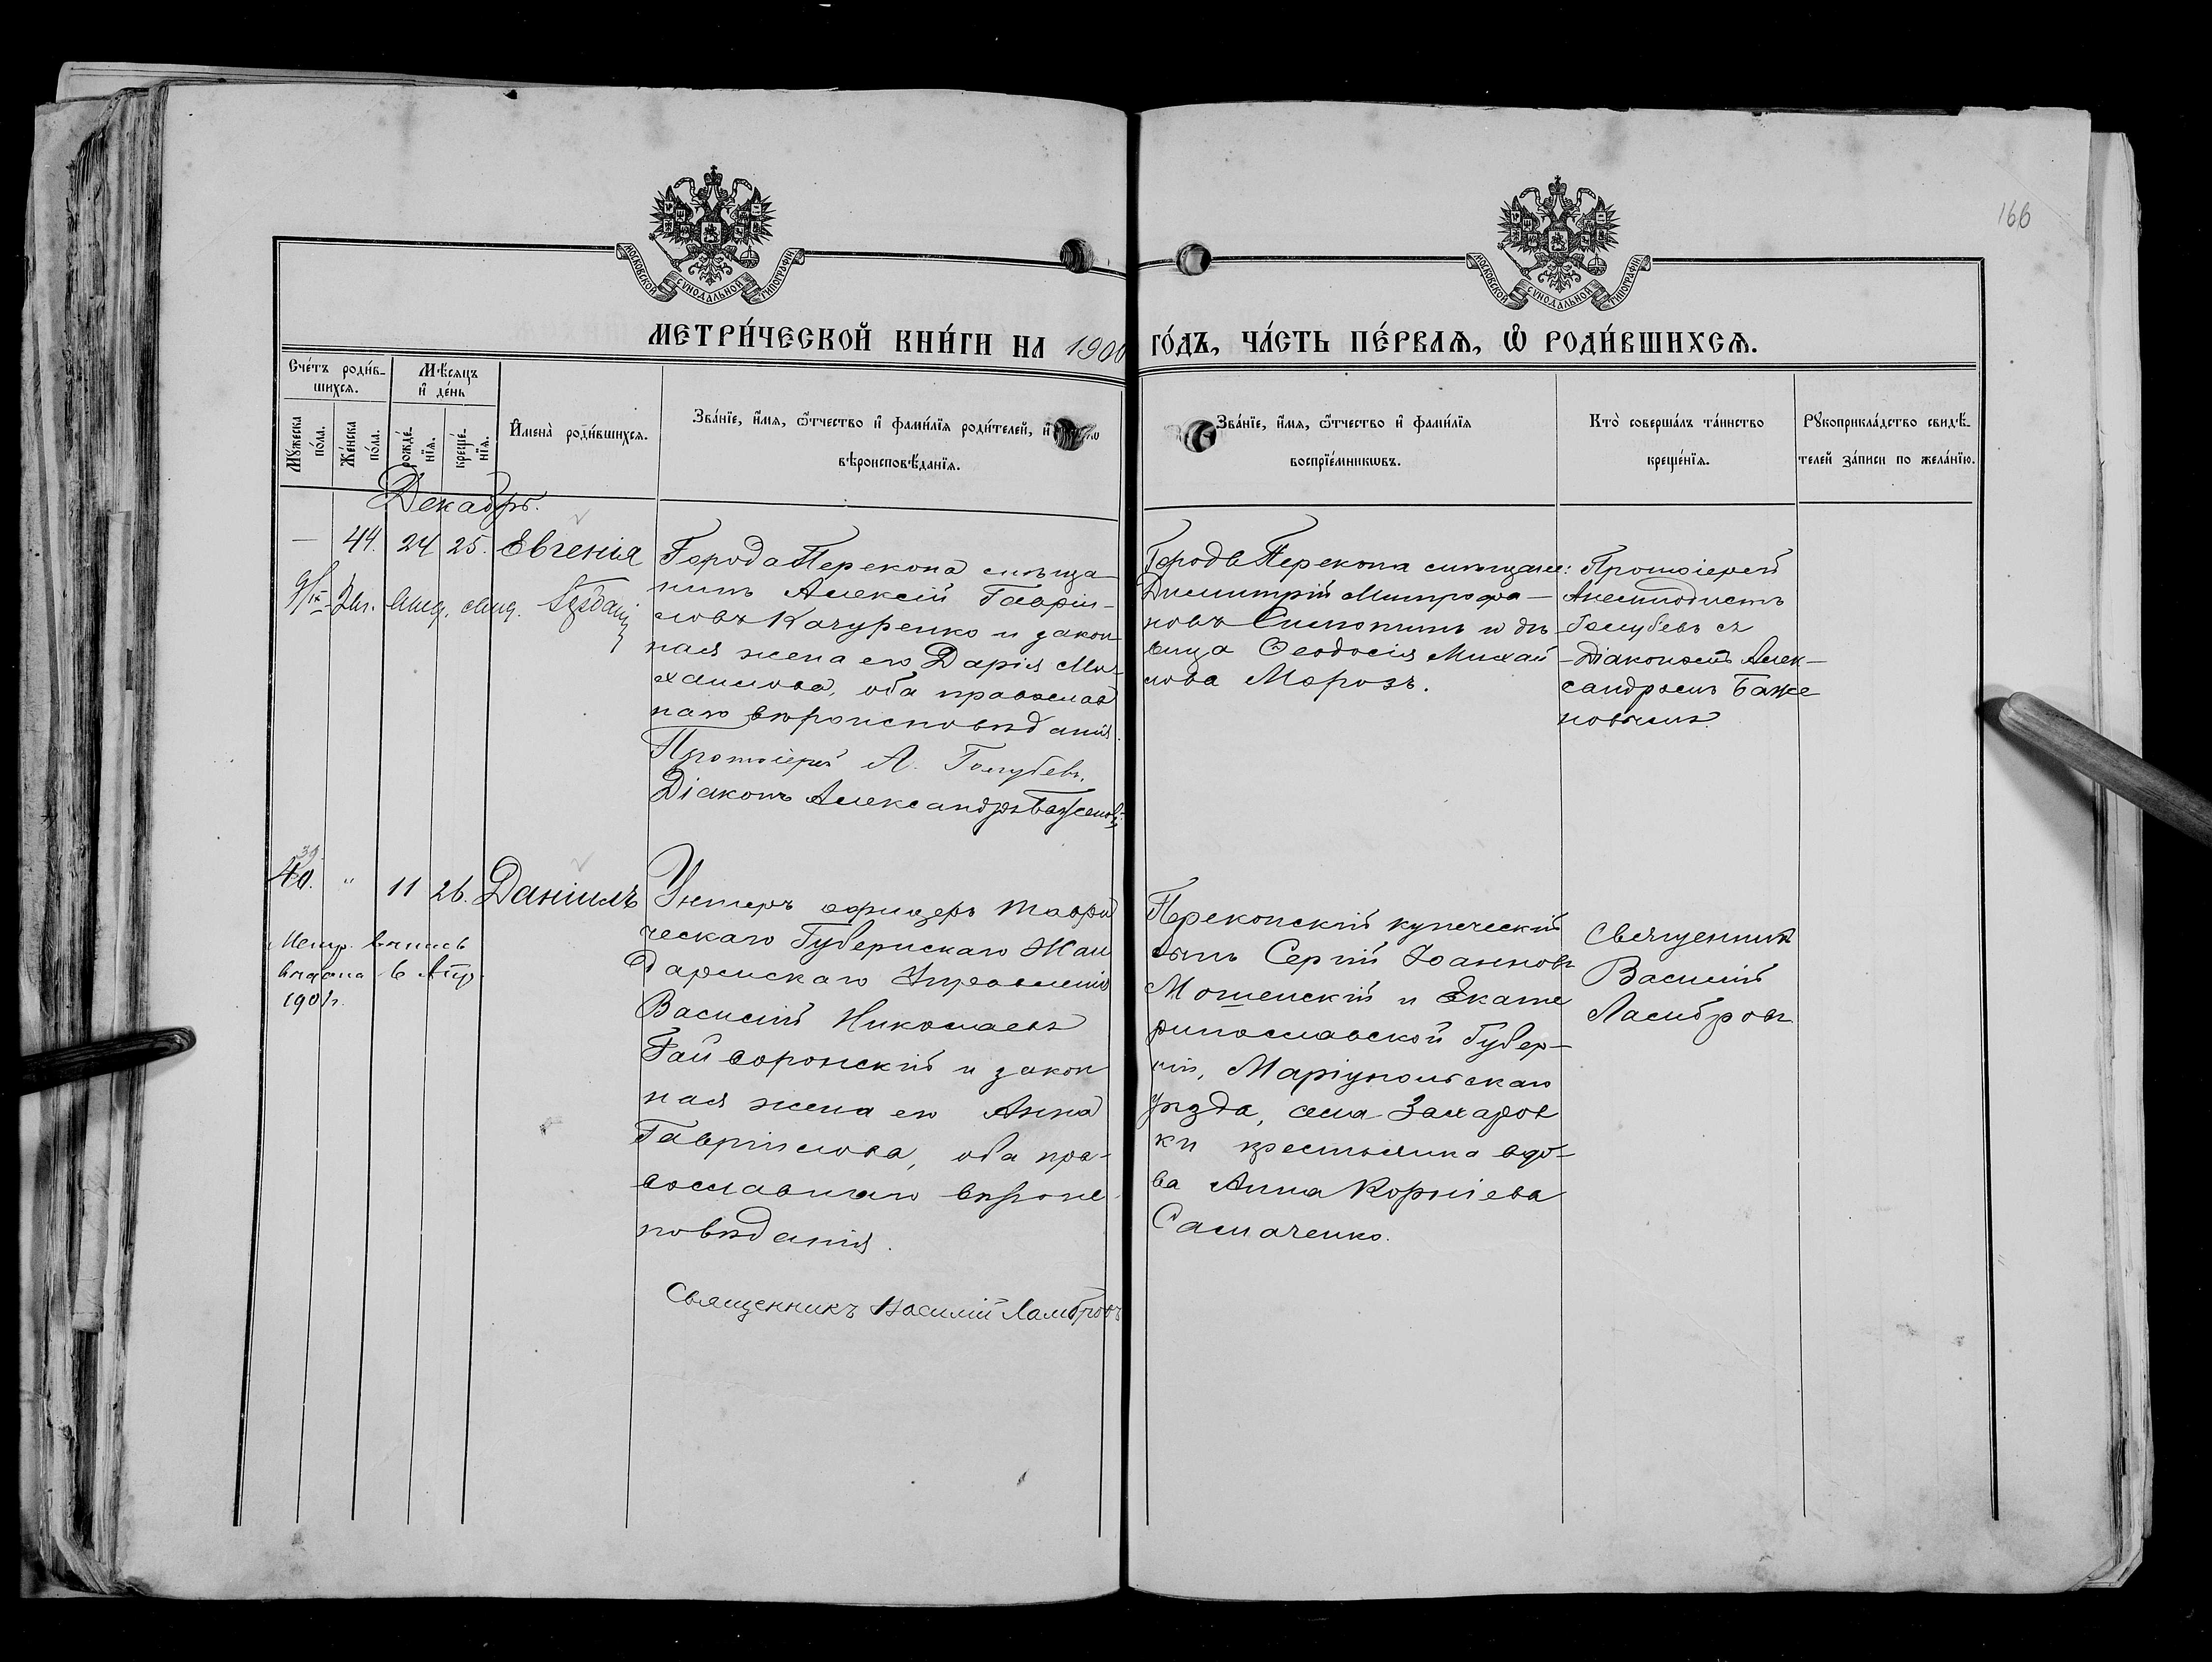 166
МОСКОВСКОЙ СѴНОДАЛЬНОЙ ТИПОГРАФІИ
МОСКОВСКОЙ СѴНОДАЛЬНОЙ ТИПОГРАФІИ
МЕТРИ́ЧЕСКОЙ КНИ́ГИ НА 1900 ГО́ДЪ, ЧА́СТЬ ПЕ́РВАѦ, Ѿ РОДИ́ВШИХСѦ.
Сче́тъ роди́в-
шихсѧ.
Мѣ́сѧцъ
и҆ де́нь
Мꙋ́жеска
по́ла.
Же́нска
по́ла.
рожде́-
нїѧ.
креще́-
нїѧ.
И҆мена̀ роди́вшихсѧ.
Зва́нїе, и҆́мѧ, ѻ҆́тчество и҆ фами́лїѧ роди́телей, и҆
вѣроисповѣ́данїѧ.
Зва́нїе, и҆́мѧ, ѻ҆́тчество и҆ фами́лїѧ
воспрїе́мникѡвъ.
Кто̀ соверша́лъ та́инство
креще́нїѧ.
Рꙋкоприкла́дство свидѣ́-
телей за́писи по жела́нїю.
Декабрь.
— 44. 24 25. Евгенія
Города Перекопа мѣща-
нинъ Алексій Гавріи-
ловъ Качуренко и закон-
ная жена его Дарія Ми-
хаилова, оба православ
наго вѣроисповѣданія.
Протоіерей А. Голубевъ.
Діаконъ Александръ Баженовъ
Города Перекопа мѣщане:
Димитрій Митрофа-
новъ и дѣ-
вица Ѳеодосія Михай-
лова Морозъ.
Протоіерей
Анемподистъ
Голубевъ съ
Діакономъ Алек-
сандромъ Баже
новымъ.
39.
40. " 11 26. Даніилъ
Метр. выпись
выдана 6 Апр.
Унтеръ офицеръ Таври
ческаго Губернскаго Жан
дармскаго Управленія
Василій Николаевъ
Гайворонскій и закон
ная жена его Анна
Гавріилова, оба пра-
вославнаго вѣроис-
повѣданія.
Священникъ Василій Ламбровъ
Перекопскій купеческій
сынъ Сергій Іоанновъ
Мошенскій и Екате
ринославской Губер-
ніи, Маріупольскаго
уѣзда, села Захаров
ки крестьянка вдо-
ва Анна Корніева
Самаченко.
Священникъ
Василій
Ламбровъ